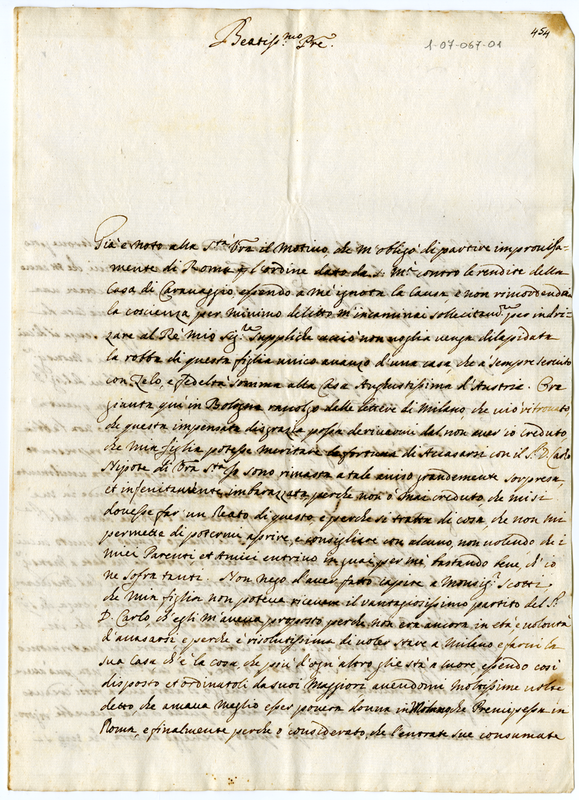 454
1-07-067-01
Beatiss.mo Pre.
Già è noto alla S.tà Vra il Motivo, che m'obligò di partire improvisa-
mente di Roma p l'ordine dato da S. M.tà contro le rendite della
Casa di Caravaggio essendo a me ignota la Causa e non rimordendomi
la coscienza per minimo delitto m'incaminai sollecitam.te per indri-
zare al Rè mio Sig.re Suppliche acciò non voglia venga dilapidata
la robba di questa figlia unico avanzo d'una casa che à sempre servito
con Zelo, e fedeltà somma alla Casa Augustissima d'Austria. Ora
giunta quì in Bologna racolgo dalle lettere di Milano che viò ritrovato
che questa impensata disgrazia possa derivarmi dal non aver io creduto
che Mia figlia potesse meritare la fortuna di Accasarsi con il S.r D. Carlo
Nipote di Vra S.tà Io sono rimasta a tale aviso grandemente sorpresa,
et infinitamente imbarazzata perche non ò mai creduto, che mi si
dovesse far un Reato di questo, e perche si tratta di cosa che non mi
permette di potermi aprire, e consigliare con alcuno, non volendo che i
miei Parenti et Amici entrino in guai per me bastando bene, ch'io
ne sofra tanti. Non nego d'aver fatto capire a Monsig.r Scotti
che Mia figlia non poteva ricevere il vantagiosissimo partito del S.r
D. Carlo, ch'egli m'aveva proposto perche non era ancora in età e volontà
d'acasarsi e perche è risolutissima di voler stare a Milano e farvi la
sua Casa ch'è la cosa che più d'ogni altro gli stà a cuore, essendo così
disposto et ordinatoli da suoi Maggiori avendomi moltissime volte
detto che amava meglio esser povera donna in Milano che Prencipessa in
Roma, e finalmente perche ò considerato, che l'entrate sue consumate